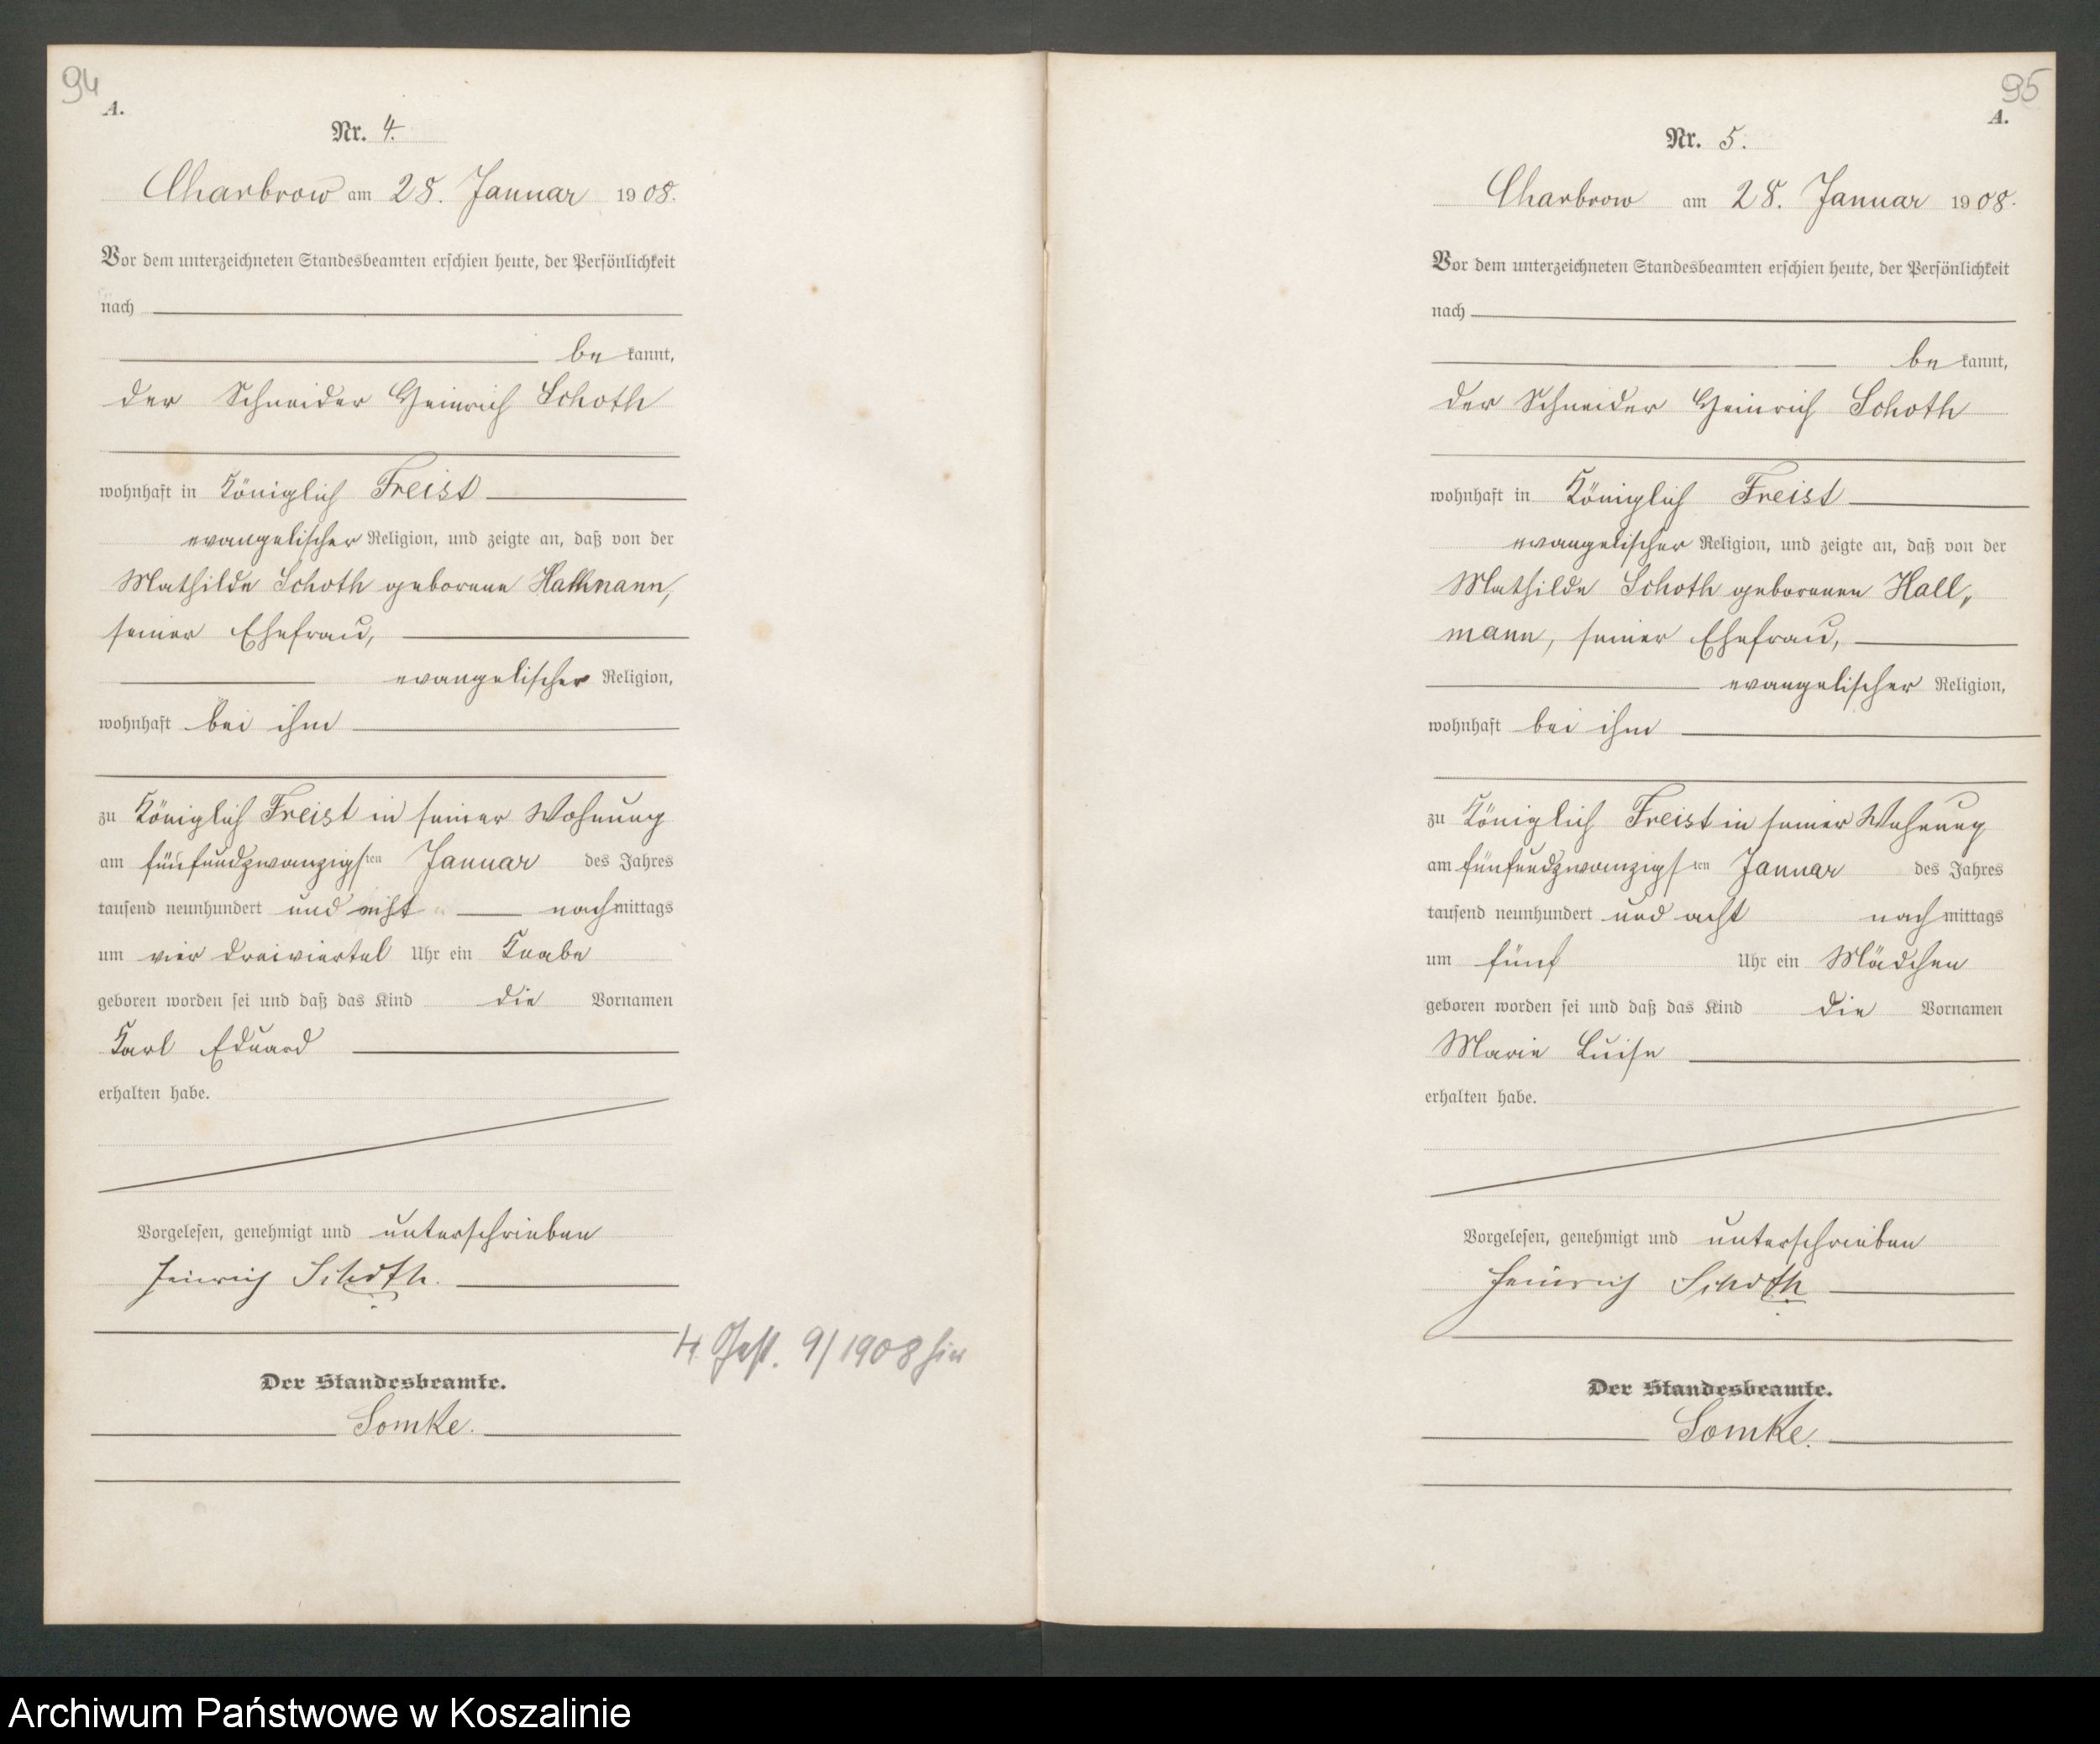 94
A.
Nr. 4.
Charbrow am 28. Januar 1908.
Vor dem unterzeichneten Standesbeamten erschien heute, der Persönlichkeit
nach
be kannt,
der Schneider Heinrich Schoth
wohnhaft in Königlich Freist
evangelischer Religion, und zeigte an, daß von der
Mathilde Schoth geborene Hallmann,
seiner Ehefrau,
evangelischer Religion,
wohnhaft bei ihm
zu Königlich Freist in seiner Wohnung
am fünfundzwanzigsten Januar des Jahres
tausend neunhundert und acht nachmittags
um vier dreiviertel Uhr ein Knabe
geboren worden sei und daß das Kind die Vornamen
Karl Eduard
erhalten habe.
Vorgelesen, genehmigt und unterschrieben
Heinrich Schoth.
Der Standesbeamte.
Somke.
9/1908 hier
95
A.
Nr. 5.
Charbrow am 28. Januar 1908.
Vor dem unterzeichneten Standesbeamten erschien heute, der Persönlichkeit
nach
be kannt,
der Schneider Heinrich Schoth
wohnhaft in Königlich Freist
evangelischer Religion, und zeigte an, daß von der
Mathilde Schoth geborenen Hall-
mann, seiner Ehefrau,
evangelischer Religion,
wohnhaft bei ihm
zu Königlich Freist in seiner Wohnung
am fünfundzwanzigsten Januar des Jahres
tausend neunhundert und acht nachmittags
um fünf Uhr ein Mädchen
geboren worden sei und daß das Kind die Vornamen
Marie Luise
erhalten habe.
Vorgelesen, genehmigt und unterschrieben
Heinrich Schoth
Der Standesbeamte.
Somke.
Archiwum Państwowe w Koszalinie